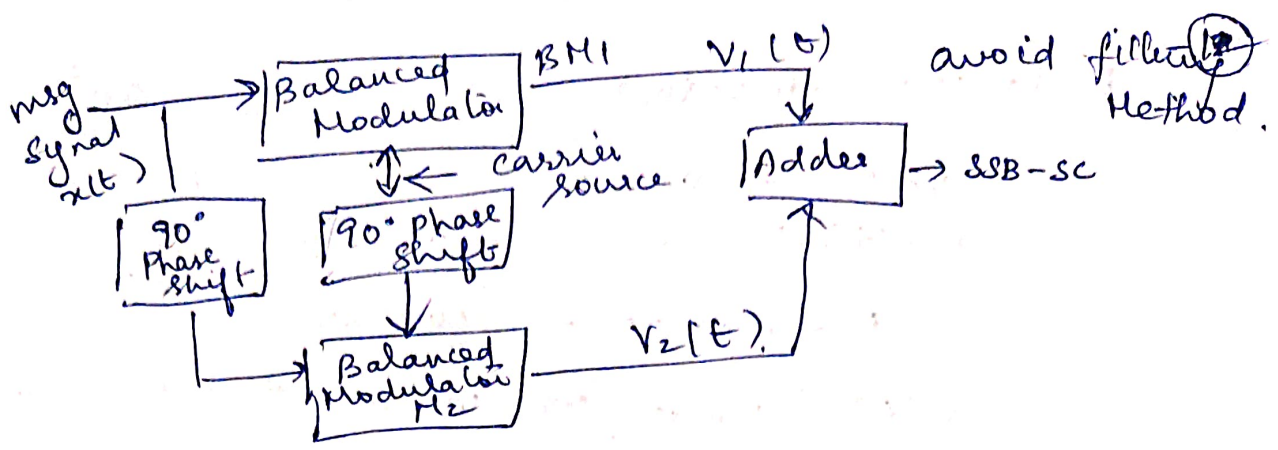 msg
signal
x(t)
Balanced
Modulator
BM1
V₁(t)
avoid
Method.
carrier
source.
Adder
→ SSB-SC
90°
Phase
shift
90° phase
shift
Balanced
Modulator
M2
V₂(t).